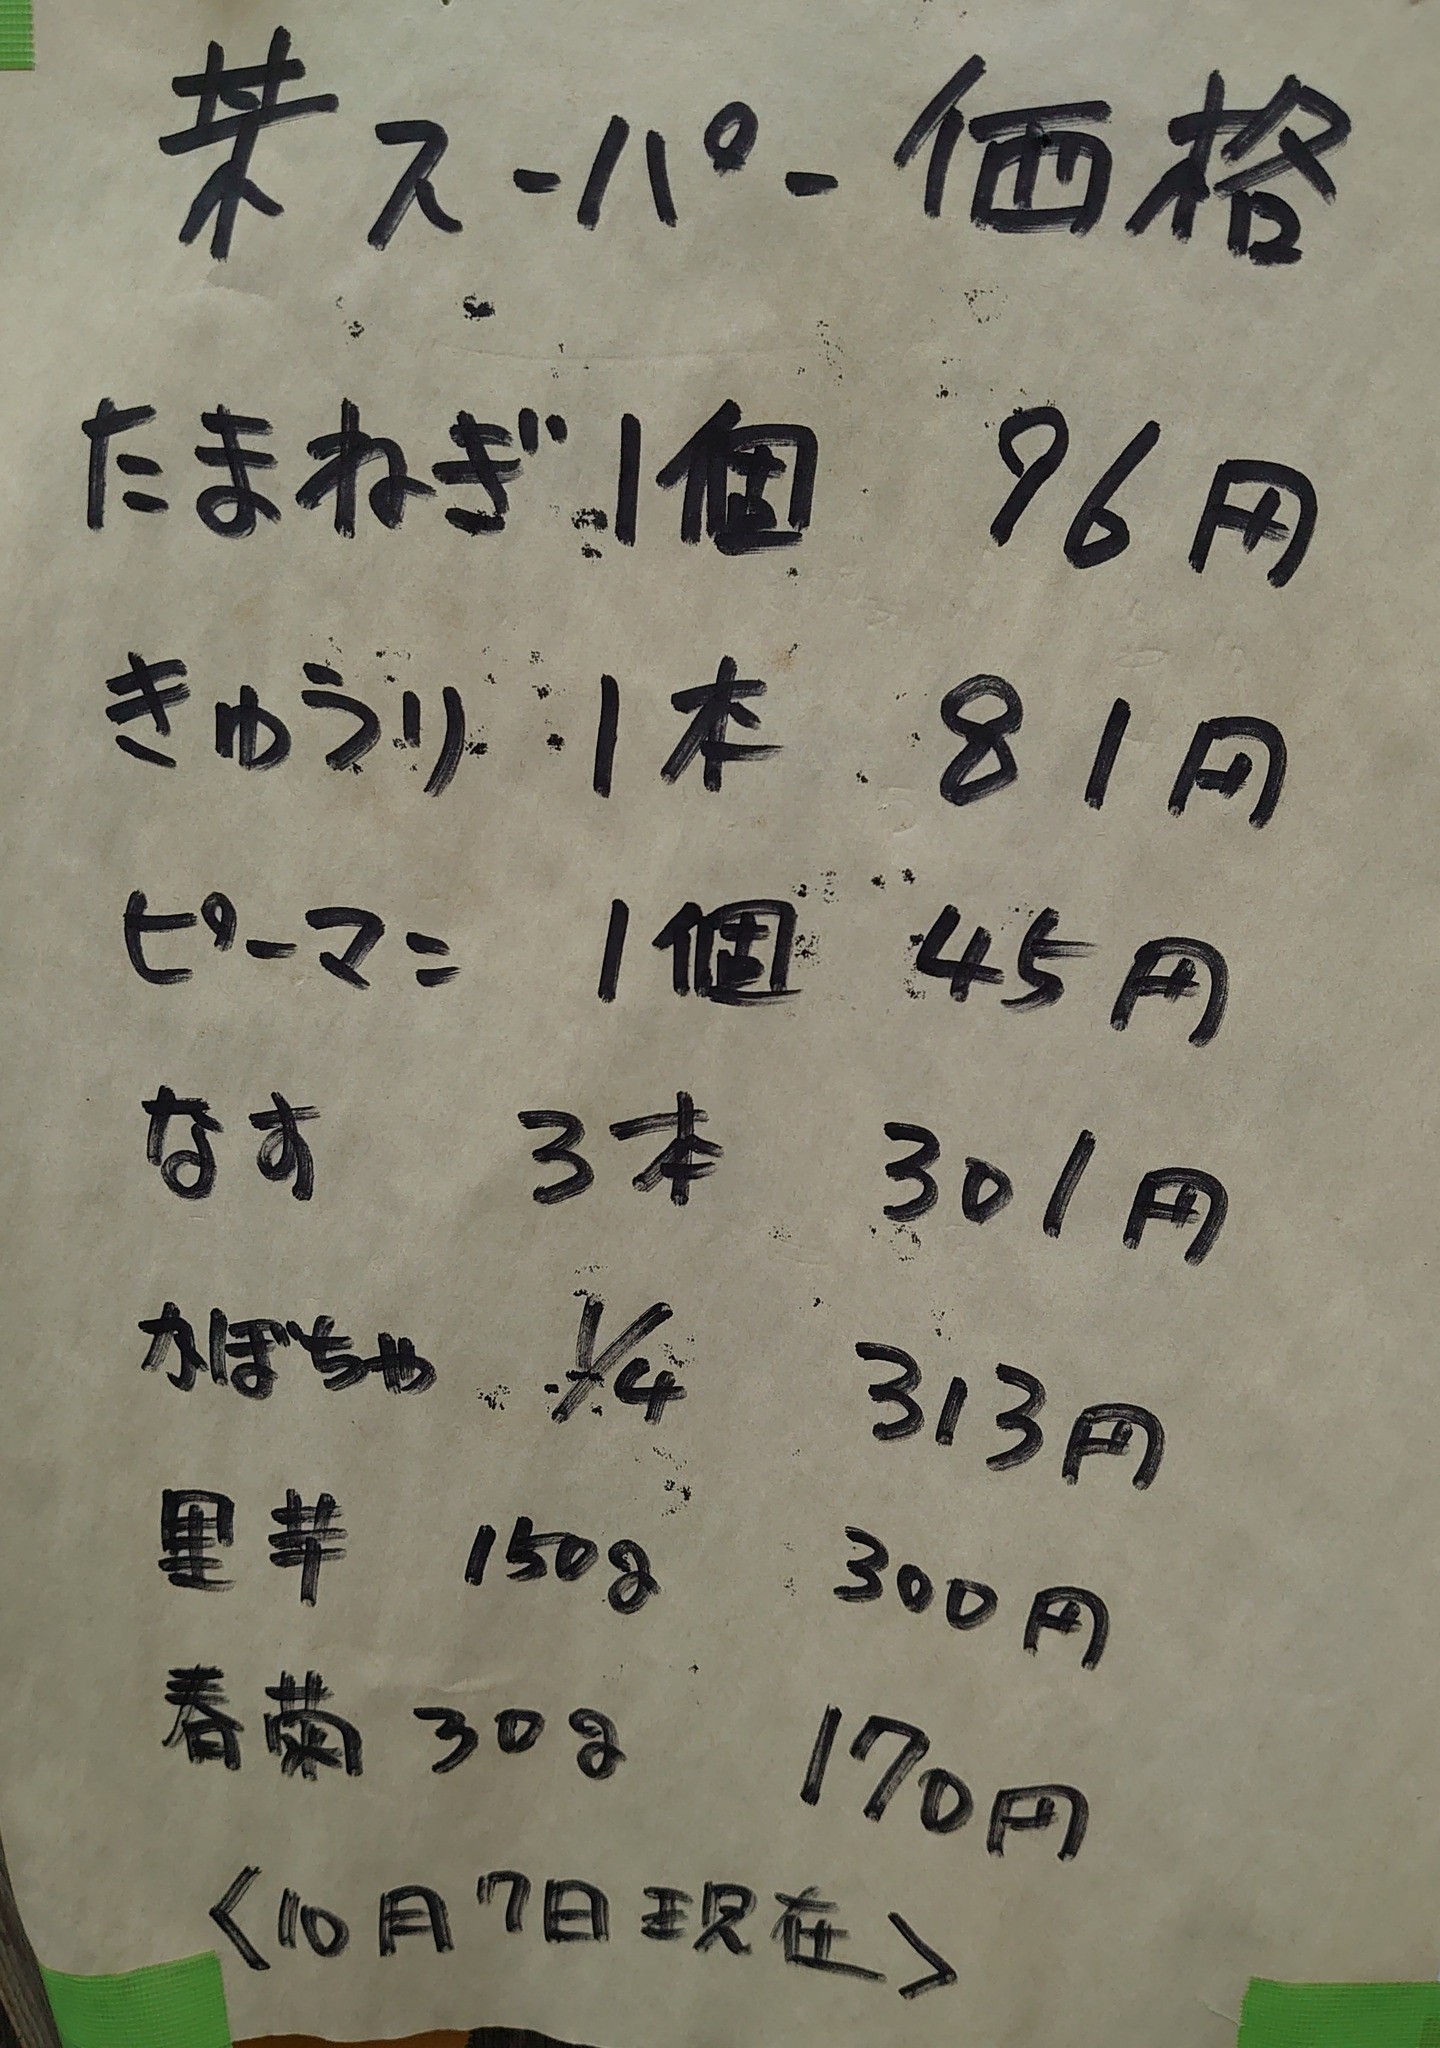 某スーパー価格
たまねぎ 1個 96円
きゅうり 1本 81円
ピーマン 1個 45円
なす 3本 301円
かぼちゃ 1/4 313円
里芋 150g 300円
春菊 30g 170円
<10月7日現在>